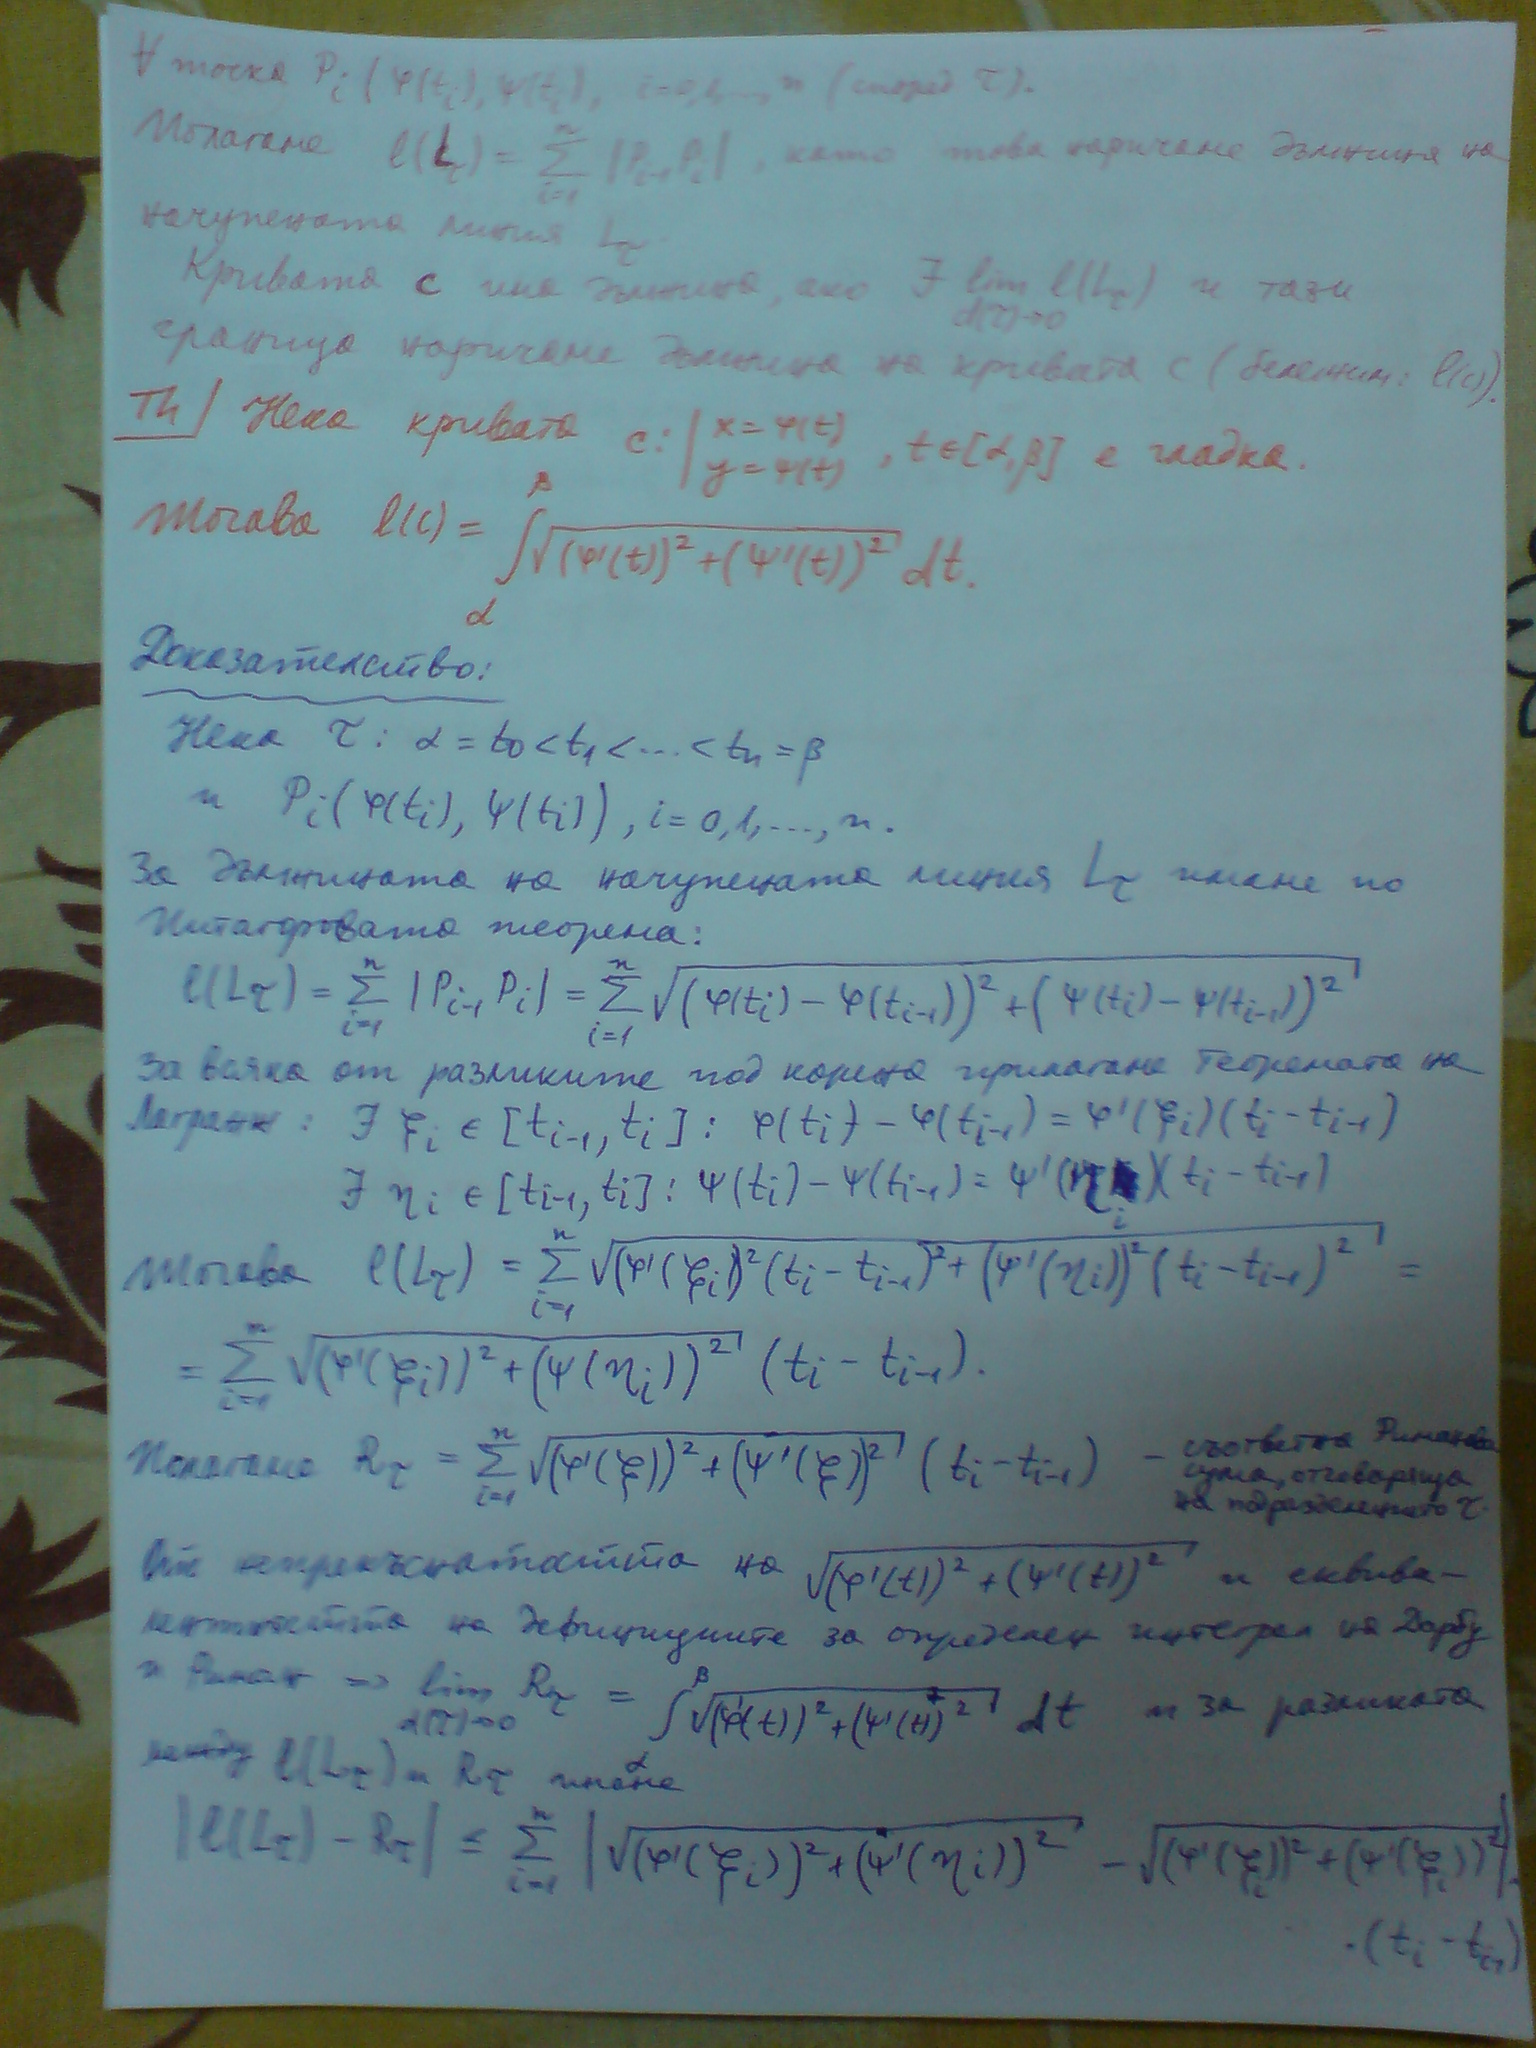 ∀ точка P_i (φ(t_i), ψ(t_i), i=0,1,...,n (според τ).
Полагаме l(L_τ) = ∑_{i=1}^{n} |P_{i-1} P_i|, като това наричаме дължина на
начупената линия L_τ.
Кривата C има дължина, ако ∃ lim_{d(τ)→0} l(L_τ) и тази
граница наричаме дължина на кривата C (бележим: l(c)).
Th | Нека кривата c: | x = φ(t) y = ψ(t) , t ∈ [α, β] е гладка.
Тогава l(c) = ∫_α^β √((φ'(t))² + (ψ'(t))²) dt.
Доказателство:
Нека τ: α = t_0 < t_1 < ... < t_n = β
и P_i (φ(t_i), ψ(t_i)), i = 0,1,...,n.
За дължината на начупената линия L_τ имаме по
Питагоровата теорема:
l(L_τ) = ∑_{i=1}^{n} |P_{i-1} P_i| = ∑_{i=1}^{n} √((φ(t_i) − φ(t_{i-1}))² + (ψ(t_i) − ψ(t_{i-1}))²)
За всяка от разликите под корена прилагаме Теоремата на
Лагранж: ∃ ξ_i ∈ [t_{i-1}, t_i]: φ(t_i) − φ(t_{i-1}) = φ'(ξ_i)(t_i − t_{i-1})
∃ η_i ∈ [t_{i-1}, t_i]: ψ(t_i) − ψ(t_{i-1}) = ψ'(η_i)(t_i − t_{i-1})
Тогава l(L_τ) = ∑_{i=1}^{n} √((φ'(ξ_i))² (t_i − t_{i-1})² + (ψ'(η_i))² (t_i − t_{i-1})²) =
= ∑_{i=1}^{n} √((φ'(ξ_i))² + (ψ(η_i))²) (t_i − t_{i-1}).
Полагаме R_τ = ∑_{i=1}^{n} √((φ'(ξ))² + (ψ'(ξ))²) (t_i − t_{i-1}) – съответна Риманова
сума, отговаряща
на подразделението τ.
От непрекъснатостта на √((φ'(t))² + (ψ'(t))²) и еквива-
лентността на дефинициите за определен интеграл на Дарбу
и Риман => lim_{d(τ)→0} R_τ = ∫_α^β √((φ'(t))² + (ψ'(t))²) dt и за разликата
между l(L_τ) и R_τ имаме
|l(L_τ) − R_τ| ≤ ∑_{i=1}^{n} |√((φ'(ξ_i))² + (ψ'(η_i))²) − √((φ'(ξ_i))² + (ψ'(ξ_i))²)|.
.(t_i − t_{i-1})